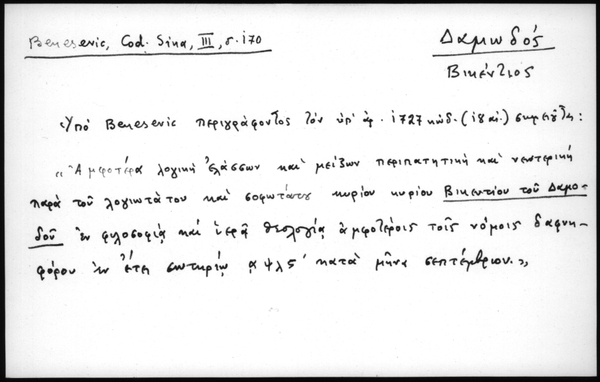 Benesevic, Cod. Sina, III, σ. 170
Δαμωδός
Βικέντιος
«Υπό Benesevic περιγράφοντος τον υπ' αρ. 1727 κωδ. (18 αι.) σημειούται:
«Ἀμφοτέρα λογική ἐλάσσων καὶ μείζων περιπατητική καὶ νεωτερική
παρά τοῦ λογιωτάτου καὶ σοφωτάτου κυρίου κυρίου Βικεντίου τοῦ Δαμο-
δοῦ ἐν φιλοσοφίᾳ καὶ ἱερᾷ θεολογίᾳ ἀμφοτέροις τοῖς νόμοις δαφνη-
φόρου ἐν ἔτει σωτηρίῳ αψλς' κατὰ μῆνα σεπτέμβριον.»